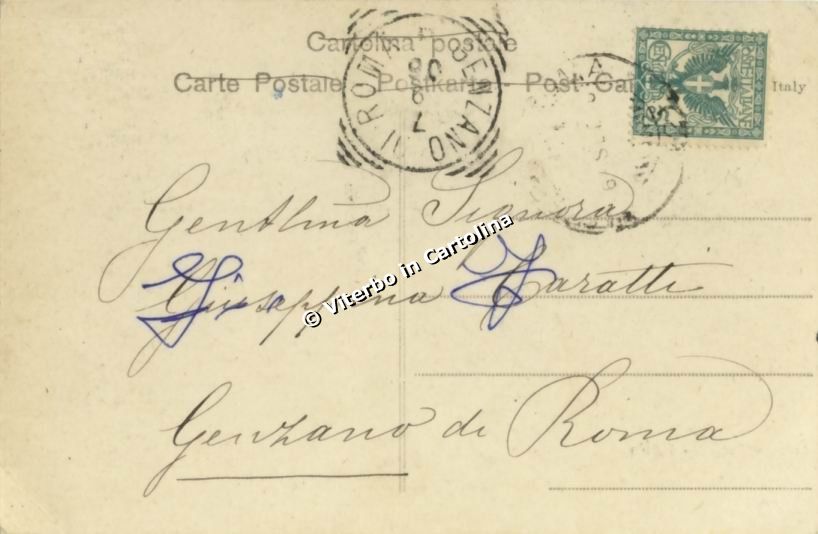 Cartolina postale
Carte Postale Postkarte Post Card Italy
GENZANO DI ROMA
7 9 08
POSTE ITALIANE
Gentilma Signora
Giuseppina Jaratti
Genzano di Roma
© Viterbo in Cartolina